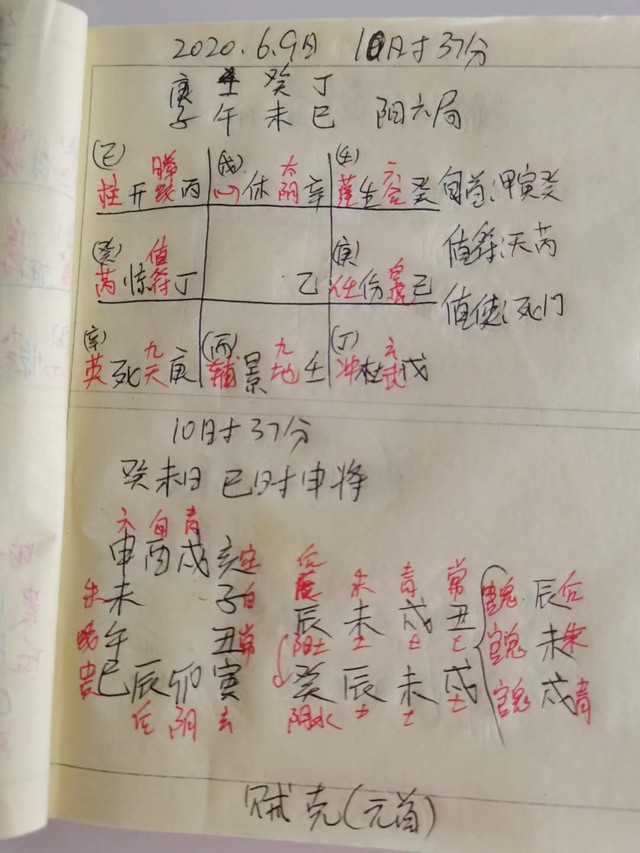 2020.6.9日 10时37分
庚 壬 癸 丁
子 午 未 巳 阳六局
(己) (戊) (壬)
柱开 螣蛇 丙 心休 太阴 辛 蓬生 六合 癸 旬首:甲寅癸
值符:天芮
(癸) (庚)
芮惊 值符 丁 乙 任伤 白虎 己
值使:死门
(辛) (丙) (丁)
英死 九天 庚 辅景 九地 壬 冲杜 玄武 戊
10时37分
癸未日 巳时申将
六 勾 青
申 酉 戌 亥 空 后 朱 青 常
朱 未 子 白 辰 未 戌 丑 官鬼 辰 后
午 丑 常 阳土 土 土 土 官鬼 未 朱
贵 巳 辰 卯 寅 癸 辰 未 戌 官鬼 戌 青
后 阴 玄 阴水 土 土 土
贼克(元首)